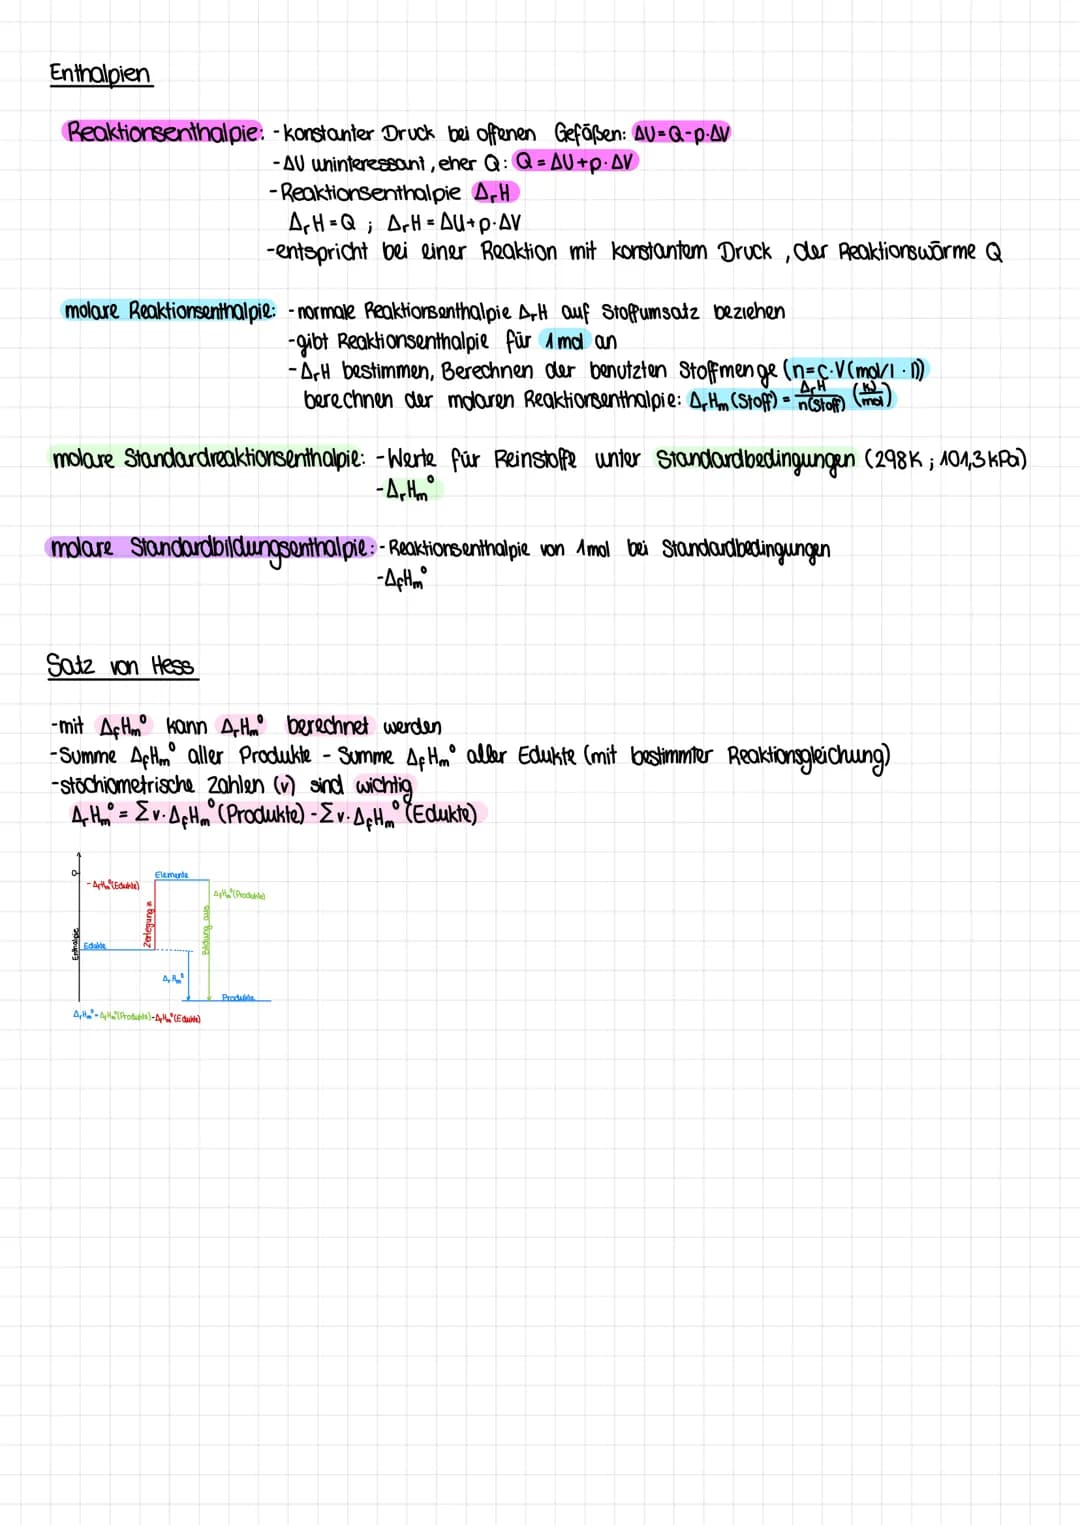 Enthalpien
Reaktionsenthalpie: -konstanter Druck bei offenen Gefäßen: ΔU=Q-p·ΔV
-ΔU uninteressant, eher Q: Q = ΔU+p·ΔV
-Reaktionsenthalpie ΔrH
ΔrH=Q ; ΔrH=ΔU+p·ΔV
-entspricht bei einer Reaktion mit konstantem Druck, der Reaktionswärme Q
molare Reaktionsenthalpie: -normale Reaktionsenthalpie ΔrH auf Stoffumsatz beziehen
-gibt Reaktionsenthalpie für 1mol an
-ΔrH bestimmen, Berechnen der benutzten Stoffmenge (n=c·V(mol/l · l))
berechnen der molaren Reaktionsenthalpie: ΔrHm (Stoff) = ΔrH/n(Stoff) (kJ/mol)
molare Standardreaktionsenthalpie: -Werte für Reinstoffe unter Standardbedingungen (298K ; 101,3 kPa)
-ΔrHm°
molare Standardbildungsenthalpie: -Reaktionsenthalpie von 1mol bei Standardbedingungen
-ΔfHm°
Satz von Hess
-mit ΔfHm° kann ΔrHm° berechnet werden
-Summe ΔfHm° aller Produkte - Summe ΔfHm° aller Edukte (mit bestimmter Reaktionsgleichung)
-stöchiometrische Zahlen (v) sind wichtig
ΔrHm° = Σv·ΔfHm° (Produkte) -Σv·ΔfHm° (Edukte)
0
Elemente
-ΔfHm°(Edukte)
ΔfHm°(Produkte)
Zerlegung in
Bildung aus
Enthalpie
Edukte
ΔrHm°
Produkte
ΔrHm°=ΔfHm°(Produkte)-ΔfHm°(Edukte)